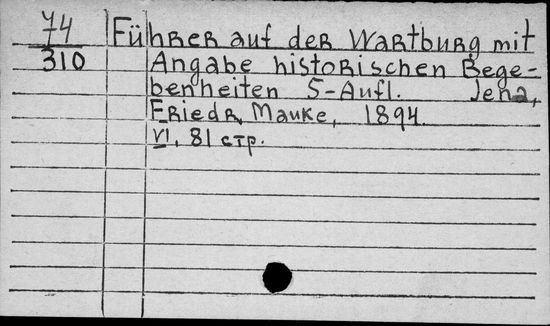 У4
310
Führer auf der Wartburg mit
Angabe historischen Bege-
benheiten 5-Aufl. Jena,
Friedr. Mauke, 1894.
VI, 81 стр.